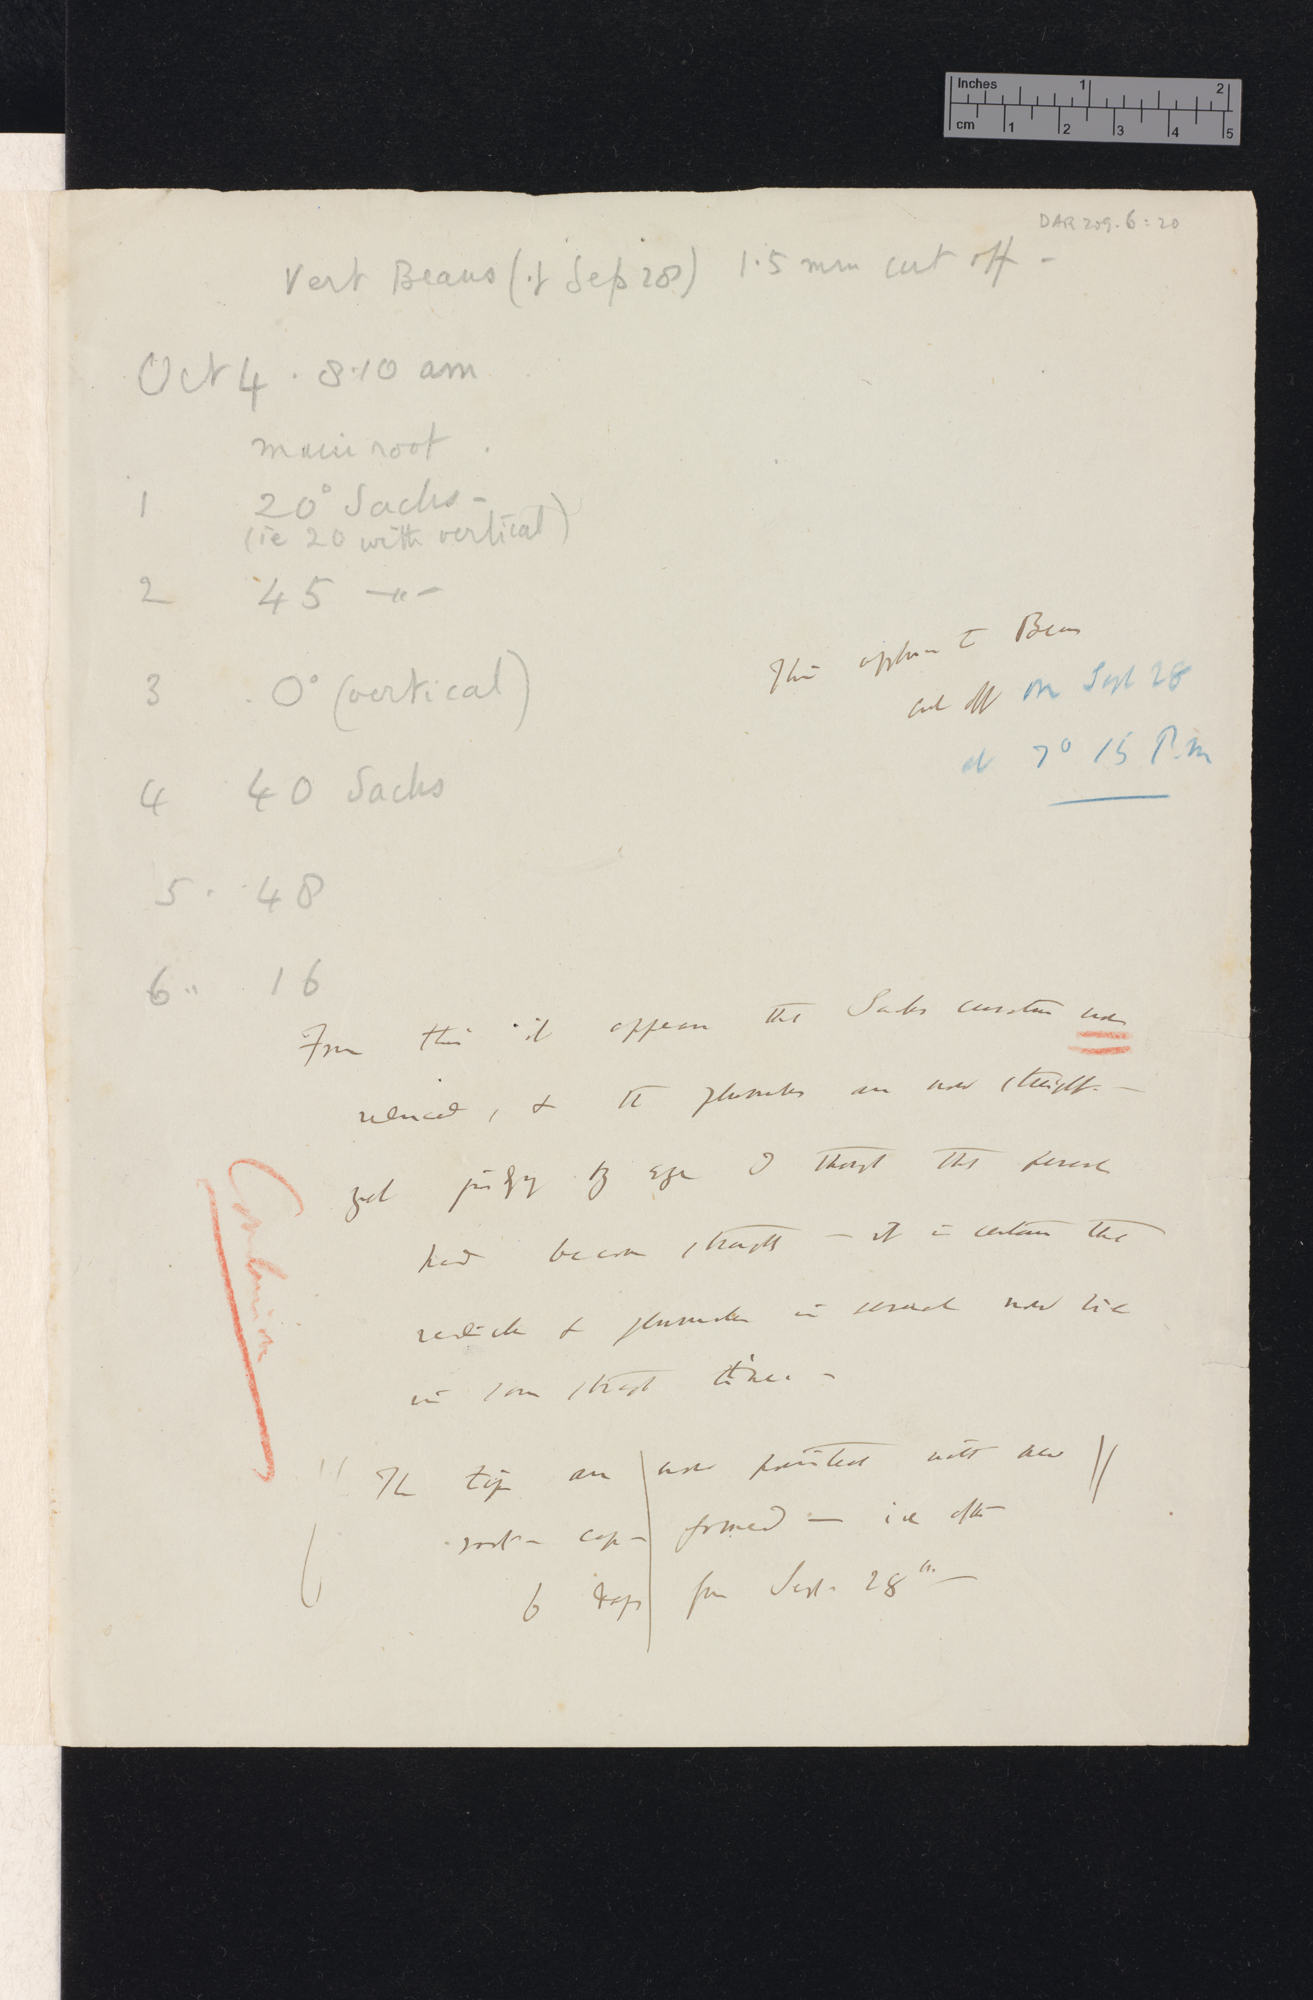 Inches 1 2
cm 1 2 3 4 5
DAR 209.6:20
Vert Beans (of Sep 28) 1.5 mm cut off -
Oct 4 . 8.10 am
main root .
1 20° Sachs -
(ie 20 with vertical)
2 45 —"—
3 0° (vertical)
4 40 Sachs
5 . 48
6 " 16
This applies to Beans
cut off on Sept 28
at 7° 15 P.m
From this it appears that Sachs curvature was
reduced, & the plumules are now straight. —
yet judging by eye I thought that several
had become straight — it is certain that
radicle & plumule in several now lie
in same straight line. —
Conclusion
The tips are now pointed with new
root-cap - formed — i.e after
6 days from Sept. 28th —